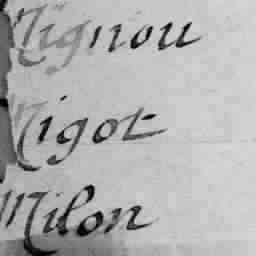 Mignou
Migot
Milon